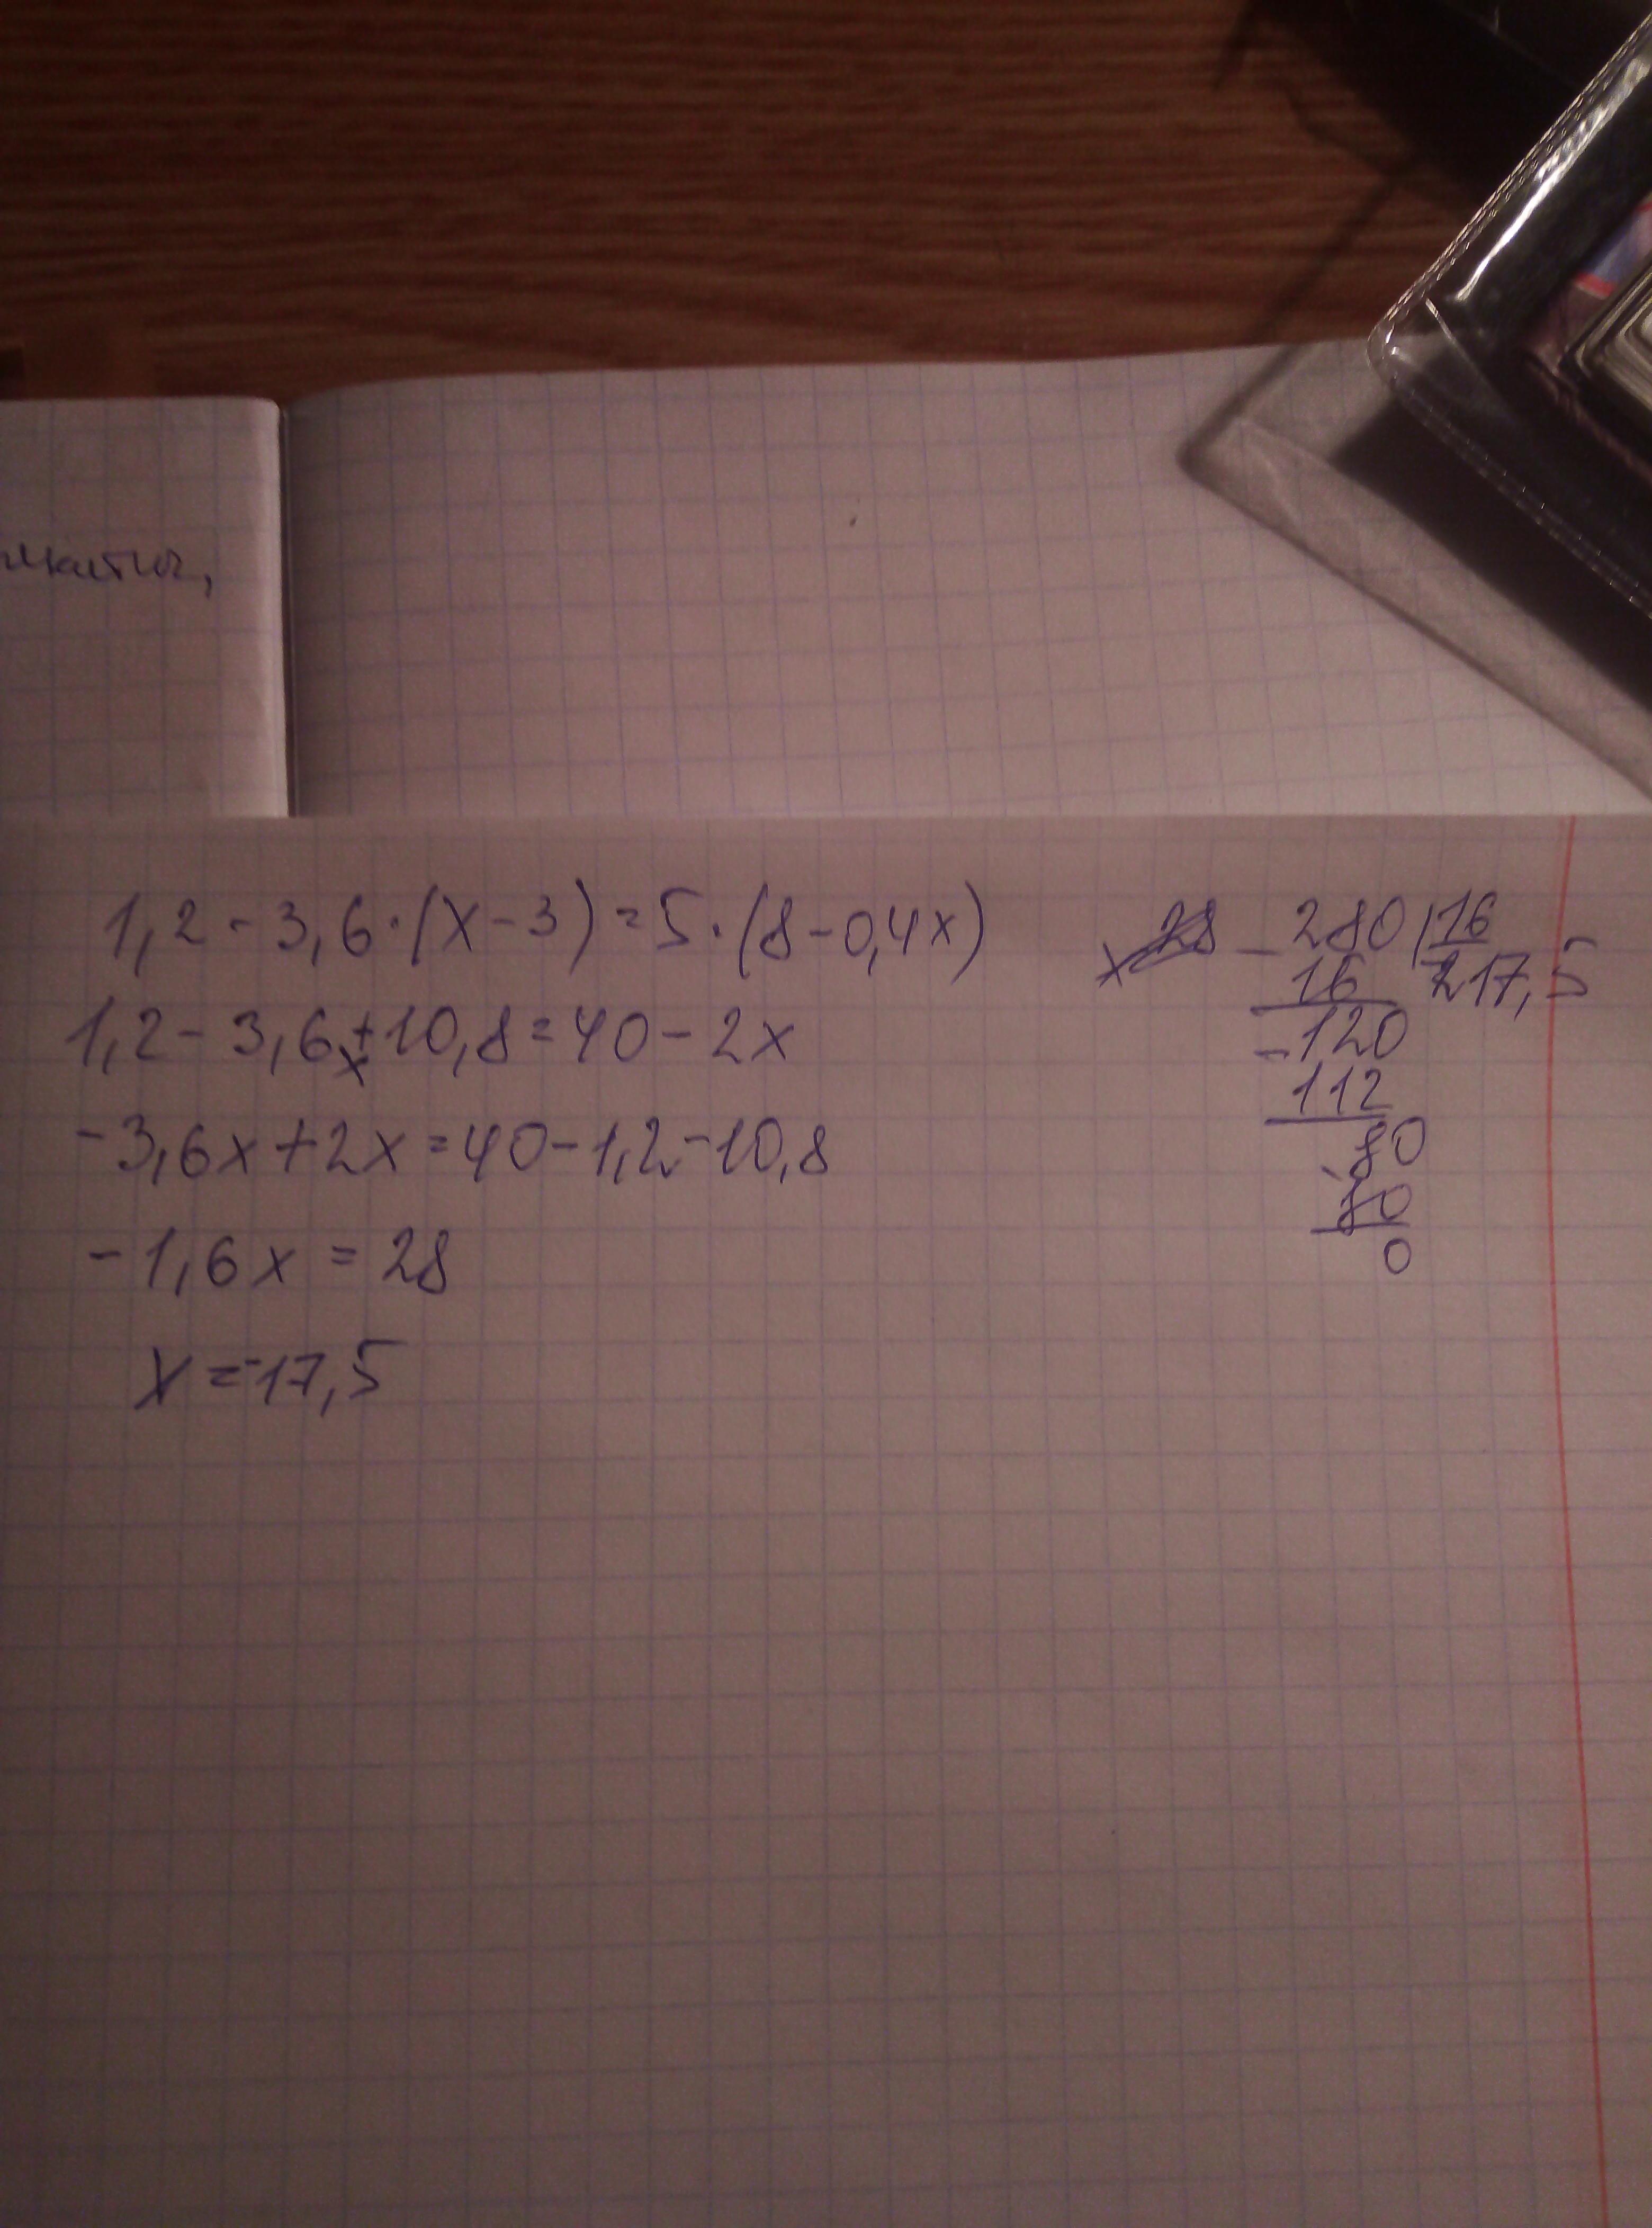 1,2 - 3,6·(x-3)=5·(8-0,4x)
1,2 - 3,6x+10,8=40-2x
-3,6x+2x=40-1,2-10,8
-1,6x=28
x=-17,5
-280|16
16 17,5
-120
112
-80
80
0